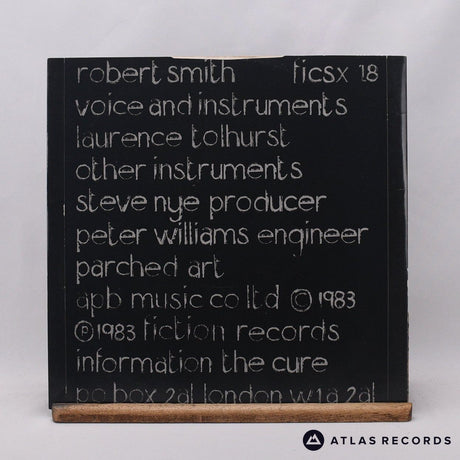 robert smith ficsx 18
voice and instruments
laurence tolhurst
other instruments
steve nye producer
peter williams engineer
parched art
apb music co ltd © 1983
℗ 1983 fiction records
information the cure
po box 2al london w1a 2al
ATLAS RECORDS